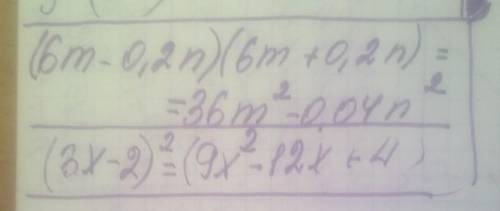 (6m - 0,2n)(6m + 0,2n) =
= 36m² - 0,04n²
(3x - 2)² = (9x² - 12x + 4)